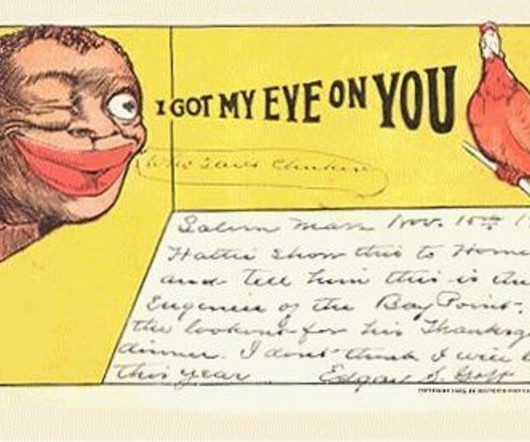 I GOT MY EYE ON YOU
Who Said Chicken
Salem Mass Nov. 15th 1
Hattie show this to Home
and tell him this is
Eugenie of the Bay Point.
the lookout for his Thanksg
dinner. I don't think I will
this year Edgar S. Goff